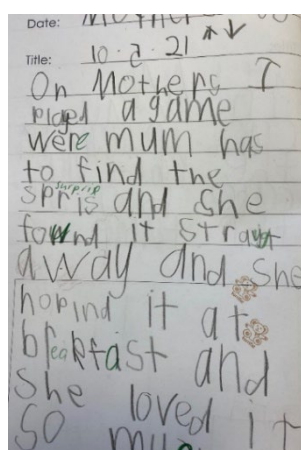 Date: Mother
Title: 10.2.21
On Mothers I
played a game
were mum has
to find the
surprip
spris and she
fownd it strawt
away and she
hopind it at
breakfast and
she loved it
so mu